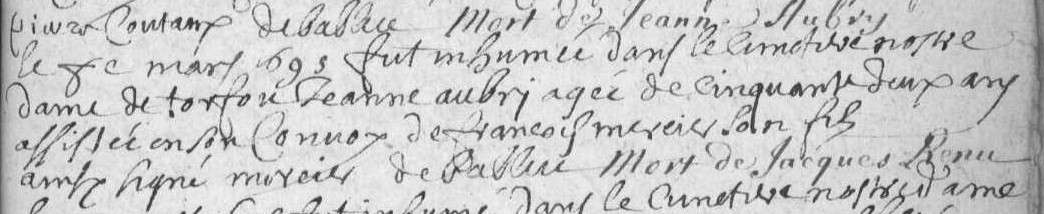 pierre Coutaux debablire Mort de Jeanne Aubry
le mars 693 fut inhumée dans le cimetire nostre
dame de torfou Jeanne aubrj agée de cinquante deux ans
assistée en son Convoy de francois mercier son fils
ainsy signé mercier debablire Mort de Jacques Renu
fut inhumé dans le cimetire nostre dame